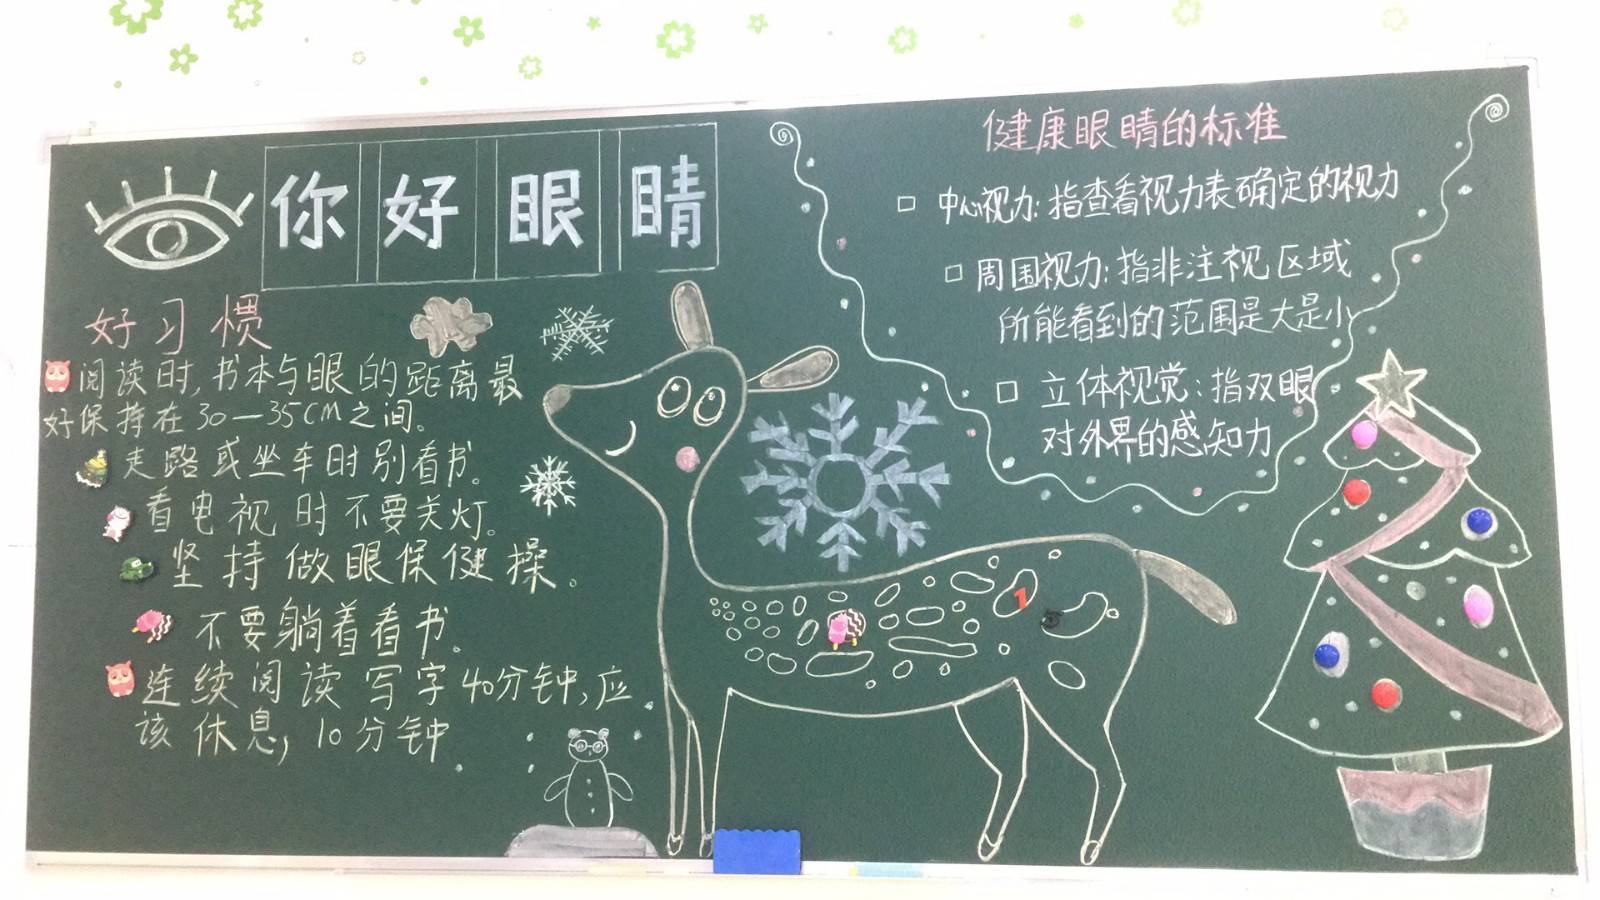 你好眼睛
好习惯
阅读时,书本与眼的距离最
好保持在30—35CM之间。
走路或坐车时别看书。
看电视时不要关灯。
坚持做眼保健操。
不要躺着看书。
连续阅读写字40分钟,应
该休息,10分钟
健康眼睛的标准
中心视力:指查看视力表确定的视力
周围视力:指非注视区域
所能看到的范围是大是小
立体视觉:指双眼
对外界的感知力
1